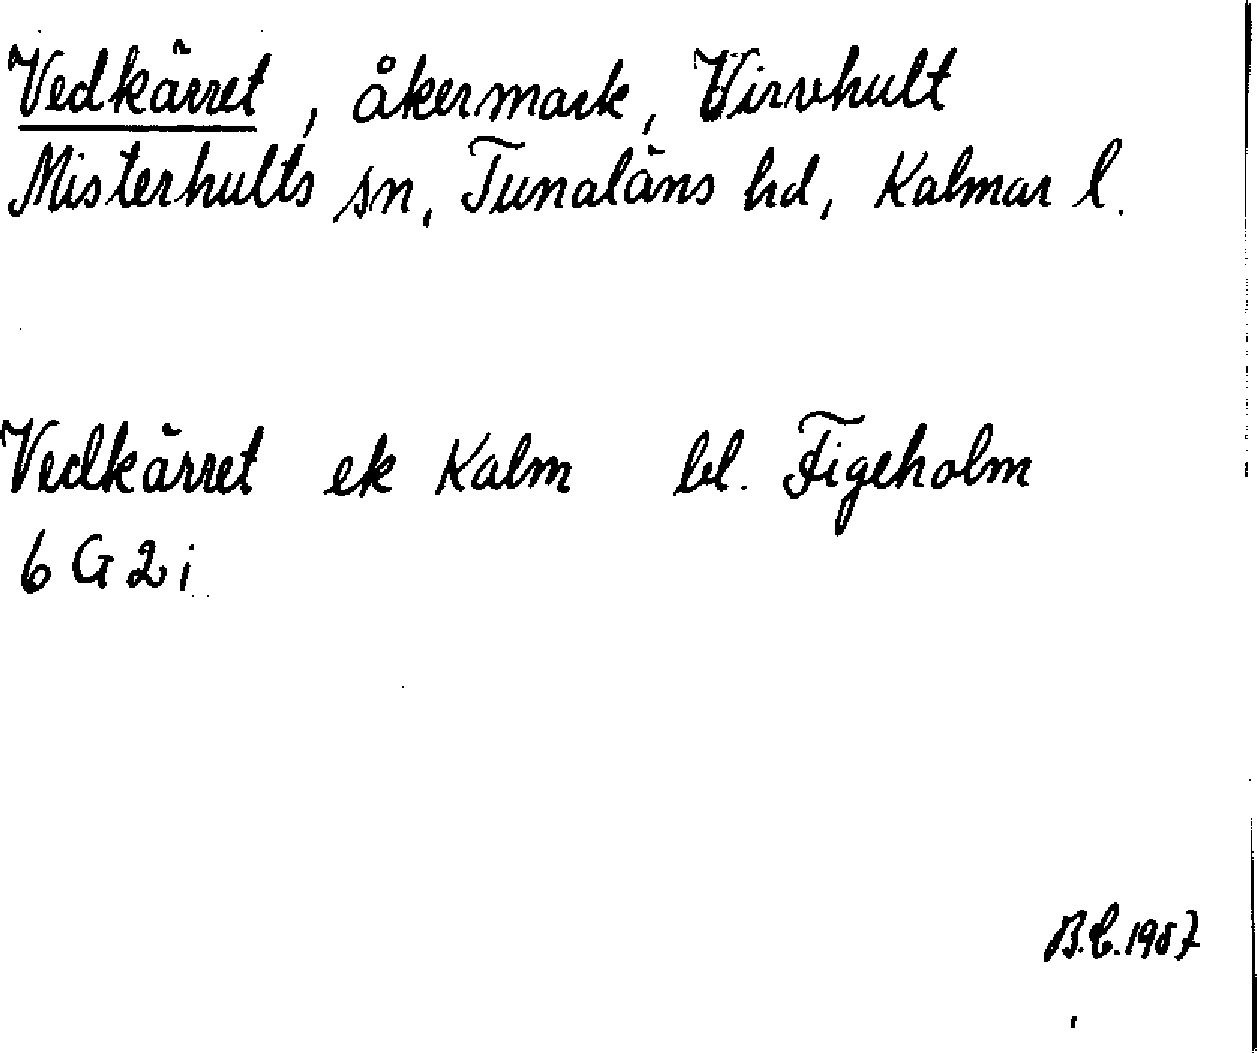 Vedkärret, åkermark, Virvhult
Misterhults sn, Tunaläns hd, Kalmar l.
Vedkärret ek Kalm bl. Figeholm
6 G 2 i